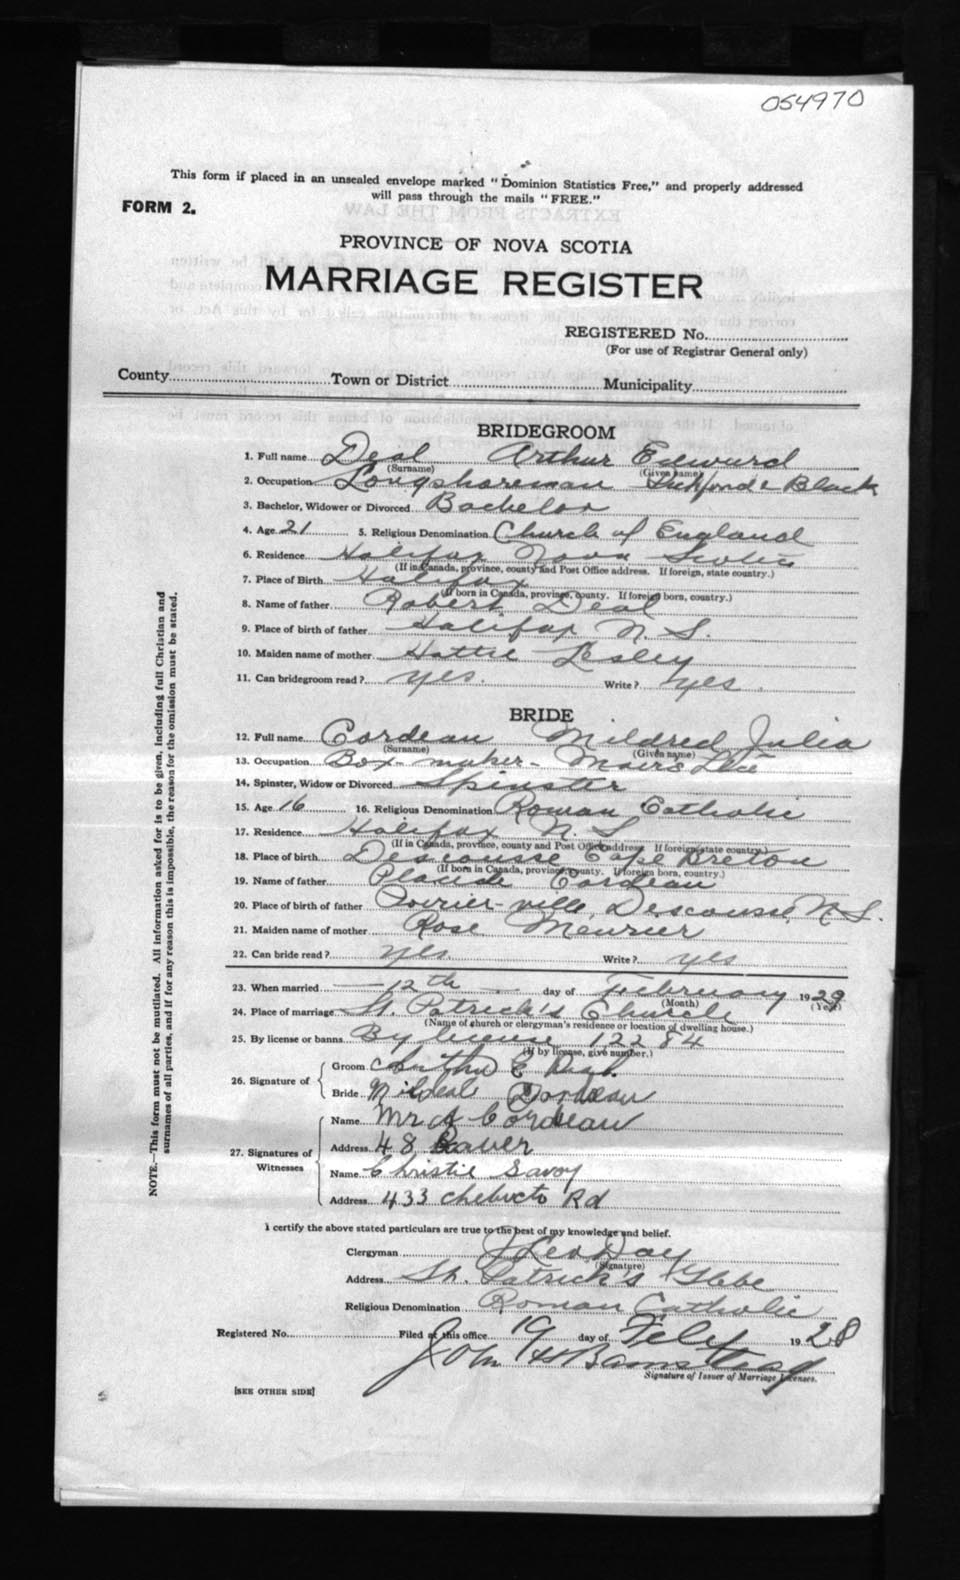 054970
This form if placed in an unsealed envelope marked "Dominion Statistics Free," and properly addressed
will pass through the mails "FREE."
FORM 2.
PROVINCE OF NOVA SCOTIA
MARRIAGE REGISTER
REGISTERED No.
(For use of Registrar General only)
County Town or District Municipality
BRIDEGROOM
1. Full name Deal Arthur Edward
(Surname) (Given name)
2. Occupation Longshoreman & Black
3. Bachelor, Widower or Divorced Bachelor
4. Age 21 5. Religious Denomination Church of England
6. Residence Halifax Nova Scotia
(If in Canada, province, county and Post Office address. If foreign, state country.)
7. Place of Birth Halifax
(If born in Canada, province, county. If foreign born, country.)
8. Name of father Robert Deal
9. Place of birth of father Halifax N. S.
10. Maiden name of mother Hattie Lesley
11. Can bridegroom read? yes. Write? yes.
BRIDE
12. Full name Cordeau Mildred Julia
(Surname) (Given name)
13. Occupation Box-maker-Moirs Ltd
14. Spinster, Widow or Divorced Spinster
15. Age 16 16. Religious Denomination Roman Catholic
17. Residence Halifax N. S
(If in Canada, province, county and Post Office address If foreign state country.)
18. Place of birth Descousse Cape Breton
(If born in Canada, province, county. If foreign born, country.)
19. Name of father Placide Cordeau
20. Place of birth of father Poirier-ville, Descousse, N. S.
21. Maiden name of mother Rose Meurier
22. Can bride read? yes. Write? yes
23. When married 12th day of February 1929
(Month) (Year)
24. Place of marriage St. Patrick's Church
(Name of church or clergyman's residence or location of dwelling house.)
25. By license or banns By license 12284
(If by license, give number.)
26. Signature of
Groom Arthur E
Bride Mildeal Dordeau
27. Signatures of Witnesses
Name Mr A Cordeau
Address 48 Bauer
Name Christie Savoy
Address 433 Chebucto Rd
I certify the above stated particulars are true to the best of my knowledge and belief.
Clergyman J Leo Day
(Signature)
Address St. Patrick's Glebe
Religious Denomination Roman Catholic
Registered No. Filed at this office 19 day of Feby 1928
John H Barnstead
Signature of Issuer of Marriage Licenses.
[SEE OTHER SIDE]
NOTE.—This form must not be mutilated. All information asked for is to be given, including full Christian and
surnames of all parties, and if for any reason this is impossible, the reason for the omission must be stated.